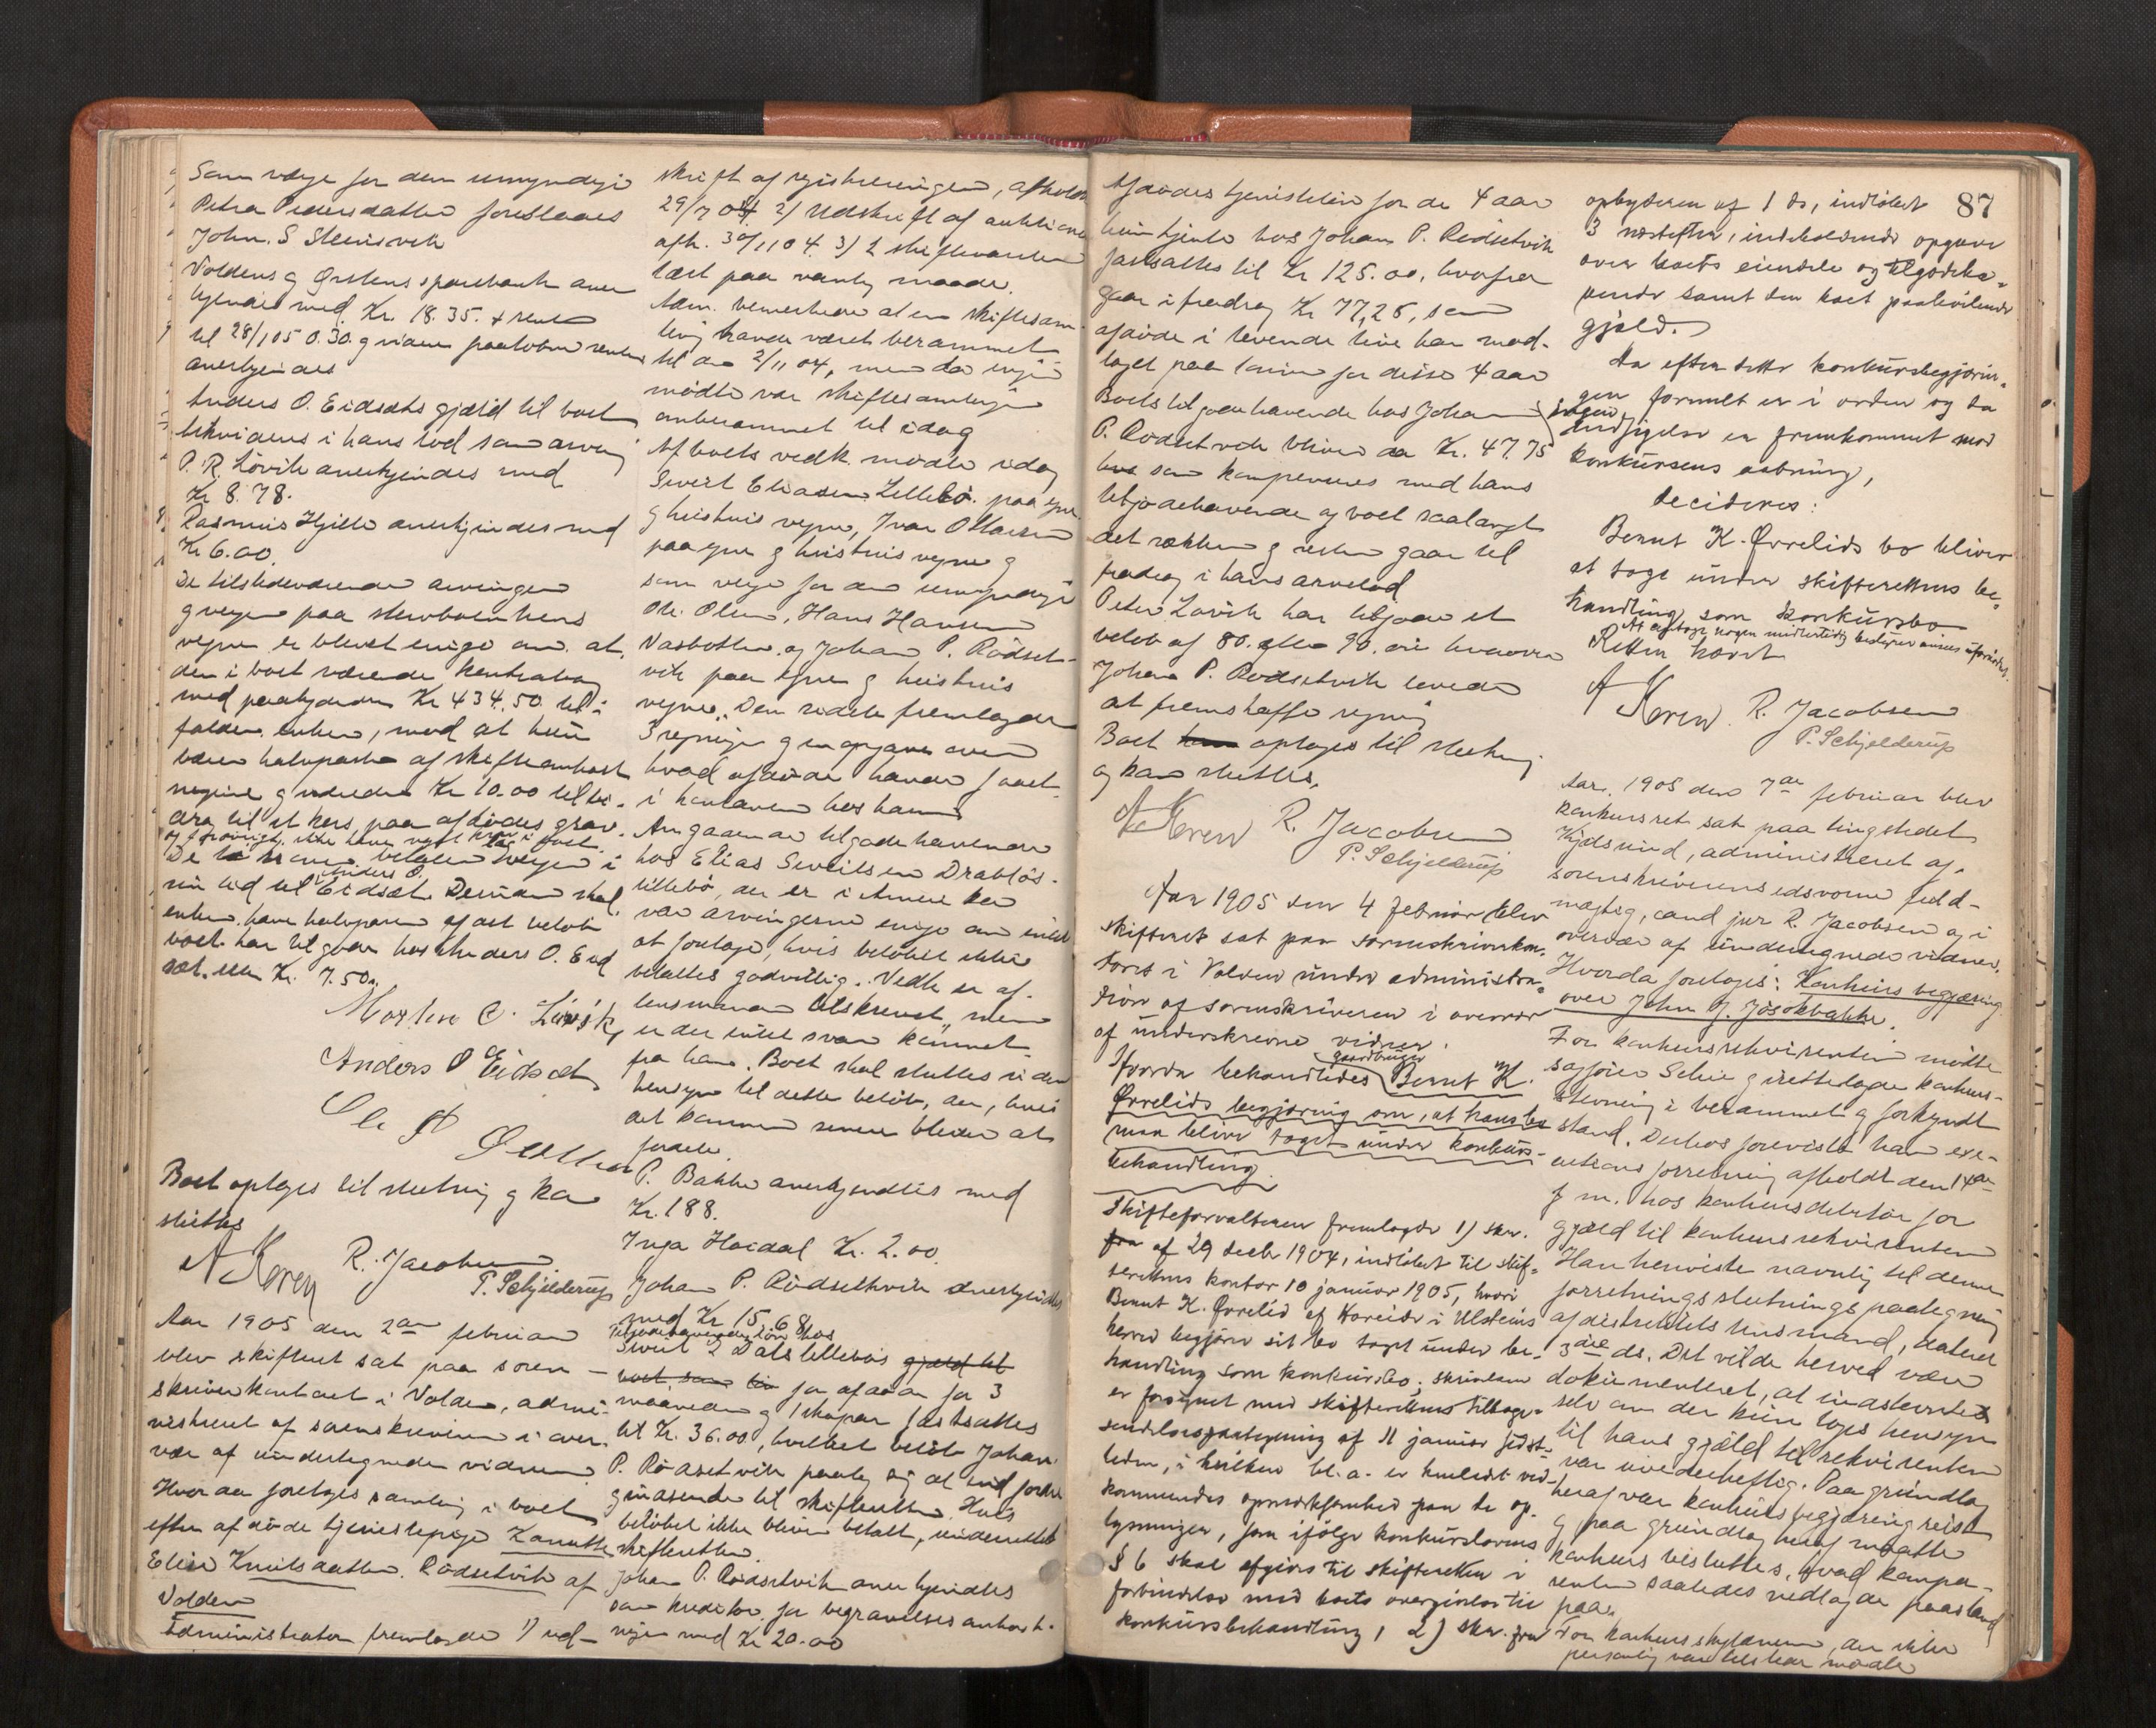 Som værge for den umyndige
Petra Pedersdatter foreslaaes
John. S Steinsvik
Voldens og Ørstens sparebank aner
kjendes med Kr. 18.35. + rente
til 28/1 05 0.30. g videre paaløbne renter
anerkjendes
Anders O. Eidsets gjæld til boet
likvideres i hans lod som arving
P. R. Løvik anerkjendes med
Kr 8.78.
Rasmus Hjelle anerkjendes med
Kr 6.00.
De tilstedeværende arvinger
g vergen paa stervboenkens
vegne er blevet enige om at
den i boet værende
med paahydende Kr 434.50 til-
falder enken, mod at hun
bærer halvparten af skifteomkost
ningene g udreder Kr 10.00 til bi-
drag til et kors paa afdødes grav.
De
sin tid til Anders O. Eidset. Derimod skal
enken have halvparten af det beløb
boet har tilgode hos Anders O. Eid
set. Kr. 7.50.
Morten C. Løvik
Anders O Eidset
Boet optages til slutning g kan
sluttes
A Koren R. Jacobsen
P. Schjelderup
Aar 1905 den 2den februar
blev skifteret sat paa soren-
skriverkontoret i Volden, admi-
nistreret af sorenskriveren i over-
vær af undertegnede vidner
Hvorda foretoges samling i boet
efter afdøde tjenestepige Kanutte
Elise Knutsdatter Rødsetvik af
Volden
Administrator fremlagde 1) ud-
skrift af registreringen, afholdt
29/7 04 2) Udskrift af auktionen
afh. 30/11 04. 3) 2 skiftevarsler
læst paa vanlig maade.
Adm. bemerkede at en skiftesam-
ling havde været berammet
til den 2/11 04, men da ingen
mødte var skiftesamlingen
omberammet til idag
Af boets vedk. mødte idag
Sivert Eliasen Lillebø paa egne
g hustrus vegne, Ivar Ottarsen
paa egne g hustrus vegne g
som verge for den umyndige
Ole Olsen, Hans Hansen
Vasbotten og Johan P. Rødset-
vik paa egne g hustrus
vegne. Den sidste fremlagde
3 regninger g en opgave over
hvad afdøde havde faaet
i kontanter hos ham
Angaaende tilgodehavende
hos Elias Sivertsen Drabløs-
lillebø, der er i Amerika
var arvingerne enige om intet
at foretage, hvis beløbet ikke
betaltes godvillig. Vedk er af
lensmanden tilskrevet, men
er der intet svar kommet
fra ham. Boet skal sluttes uden
hensyn til dette beløb, der, hvis
det kommer senere bliver at
fordele.
P. Bakke anerkjendtes med
Kr. 188.
Inga Hovdal Kr. 2.00
Johan P. Rødsethvik anerkjendtes
med Kr 15,68
Tilgodehavende løn hos
Sivert E Dalslillebø
for afdøde for 3
maaneder g 1 skopar fastsattes
til Kr. 36.00, hvilket beløb Johan
P. Rødsetvik paatog sig at indfordre
g indsende til skifteretten. Hvis
beløbet ikke bliver betalt, underrettes
skifteretten.
Johan P. Rødsetvik anerkjendtes
som kreditor for begravelsesomkost-
ninger med Kr 20.00
87
Afdødes tjenesteløn for de 4 aar
hun tjente hos Johan P. Rødsetvik
fastsattes til Kr 125.00, hvorfra
gaar i fradrag Kr 77,25, som
afdøde i levende live har mod-
taget paa lønnen for disse 4 aar
Boets tilgodehavende hos Johan
P. Rødsetvik bliver da Kr. 47.75
som kompenseres med hans
tilgodehavende og boet saalangt
det rækker g resten gaar til
fradrag i hans arvelod
Peter Løvik har tilgode et
beløb af 80. eller 90. øre hvorover
Johan P. Rødsetvik lovede
at fremskaffe regning
Boet optages til slutning
og kan sluttes.
A Koren R. Jacobsen
P. Schjelderup
Aar 1905 den 4 februar blev
skifteret sat paa sorenskriverkon-
toret i Volden under administra-
tion af sorenskriveren i overvær
af underskrevne vidner.
Hvorda behandledes gaardbruger Bernt K.
Ørrelids begjæring om, at hans bo
maa blive taget under konkurs-
behandling.
Skifteforvalteren fremlagde 1) skr.
af 29 decb 1904, indløbet til skif-
terettens kontor 10 januar 1905, hvori
Bernt K. Ørrelid af Hareide i Ulsteins
herred begjærer sit bo taget under be-
handling som konkursbo; skrivelsen
er forsynet med skifterettens tilbage-
sendelsespaategning af 11 januar sidst-
leden, i hvilken bl. a. er henledet ved-
kommendes opmerksomhed paa de op-
lysninger, som ifølge konkurslovens
§ 6 skal afgives til skifteretten i
forbindelse med boets overgivelse til
konkursbehandling, 2) skr. fra
opbyderen af 1 ds, indløbet
3 næstefter, indeholdende opgave
over boets eiendele og tilgodeha-
vende samt den boet paahvilende
gjæld.
Da efter dette konkursbegjærin-
gen formelt er i orden og da
ingen indsigelse er fremkommet mod
konkursens aabning,
decideres:
Bernt K. Ørrelids bo bliver
at tage under skifterettens be-
handling som konkursbo
At opta̲ge nogen midlertidig bestyrer ansees ufornøden.
Retten hævet
A Koren R. Jacobsen
P. Schjelderup
Aar 1905 den 7de februar blev
konkursret sat paa tingstedet
Hjdsund, administreret af
sorenskriverens edsvorne fuld-
mægtig, cand jur R. Jacobsen og i
overvær af undertegnede vidner.
Hvorda foretoges: Konkurs begjæring
over John J. Jøsokbakke.
For konkursrekvirenten mødte
sagfører Schie g irettelagde konkurs-
stevning i berammet g forkyndt
stand. Derhos foreviste han exe-
cutions forretning afholdt den 14de
f m. hos konkursdebitor for
gjæld til konkursrekvirenten
Han henviste navnlig til denne
forretnings slutnings paategning
af distriktets lensmand, dateret
3die ds. Det vilde herved være
dokumenteret, at indstevnte
selv om der kun toges hensyn
til hans gjæld til rekvirenten
var uvederheftig. Paa grundlag
heraf var konkursbegjæring reist
g paa grundlag heraf maatte
konkurs besluttes, hvad kompa-
renten saaledes nedlagde paastand
paa.
For konkursskyldneren, der ikke
personlig var tilstede mødte